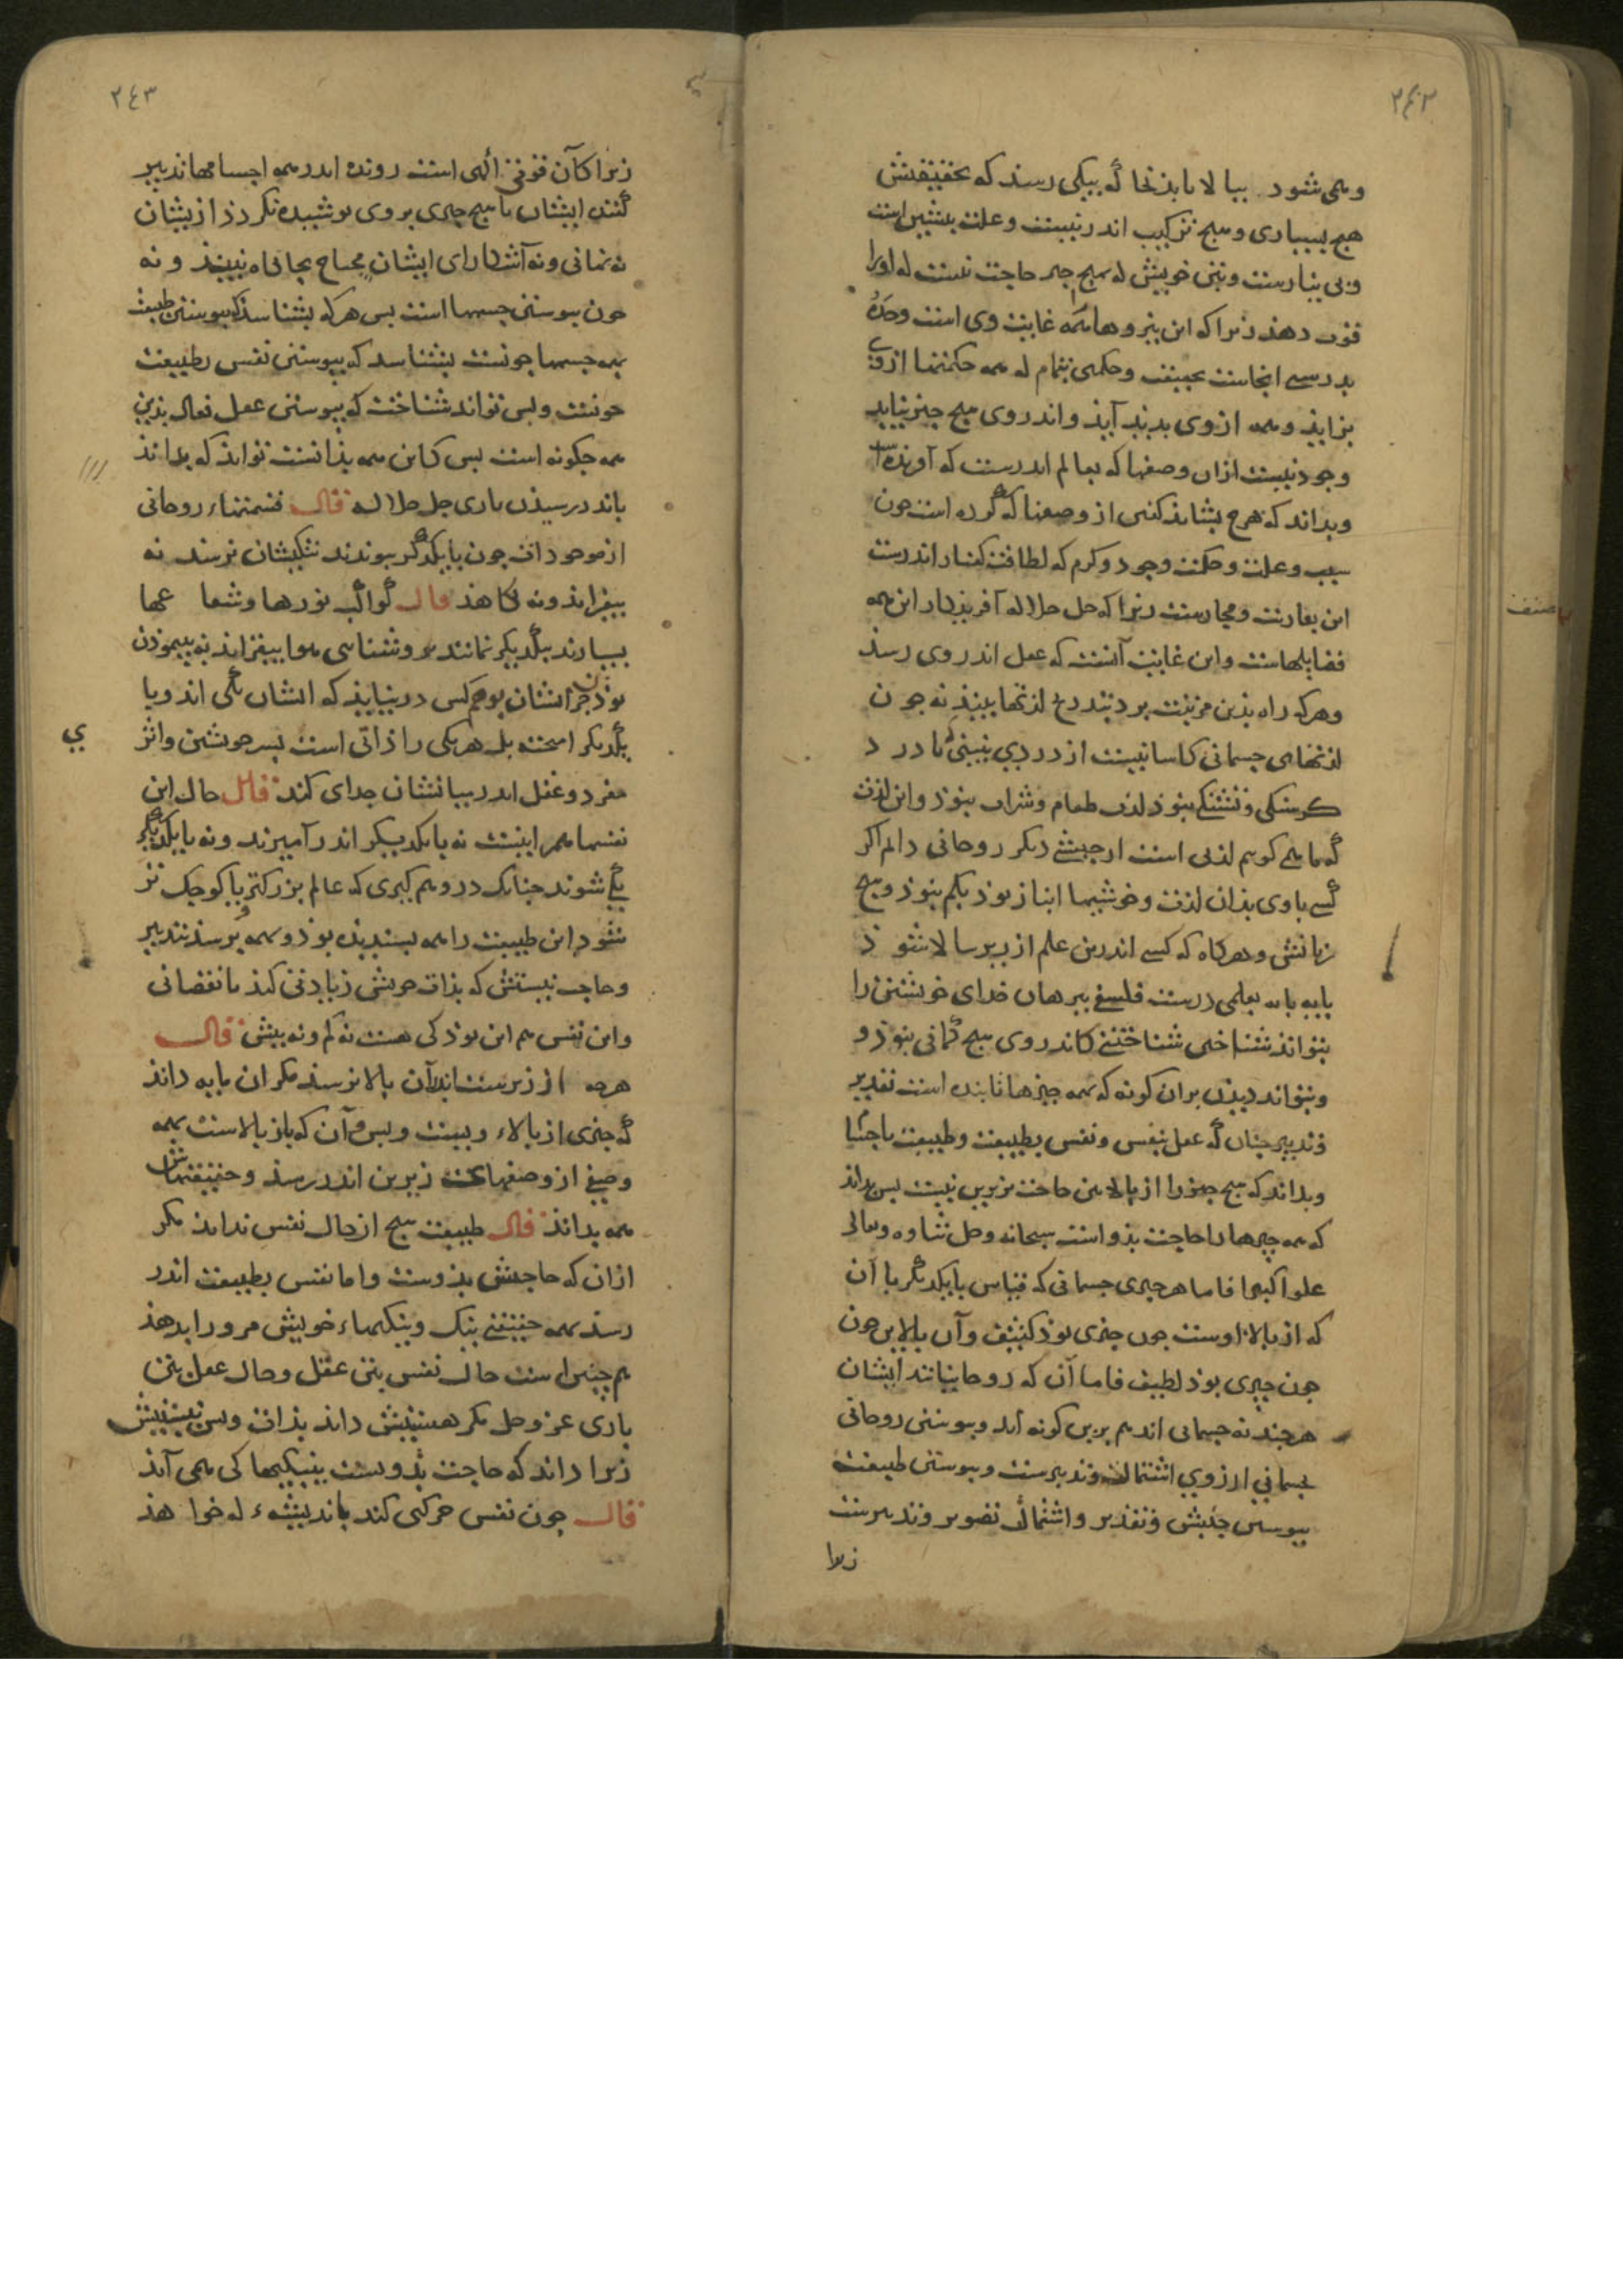 ۲۴۲
وهمی شود ببالا تا بذنجا که بیکی رسد که بحقیقتش
هیچ بسیاری وهیچ ترکیب اندر نیست وعلت پیشین است
وبی نیازست وبتن خویش له بهیچ چیز حاجت نیست له اورا
قوت دهد زیرا که این نیروها همه غایت وی است وحده
بدرستی انجاست بحقیقت وحکمی تمام له همه حکمتها ازوی
بزاید وهمه ازوی پدید آید واندروی هیچ چیز نیاید
وجود نیست ازان وصفها که بعالم اندرست که آورنده
وبداند که هرچ بشاید کفتن از وصفها که کرده است چون
سبب وعلت وحکمت وجود وکرم که لطافت کفتار اندرست
این بعاریت ومجازست زیرا که جل جلاله آفریذکار این همه
فضایلهاست واین غایت آنست که عقل اندر وی رسد
وهرکه راه بذین مرتبت برد بتدریج لذتها بیند نه چون
لذتهای جسمانی کاسانیست از دردی نبینی تا درد
کرسنکی وتشنکی نبوذ لذت طعام وشراب نبوذ واین لذت
که ما همی کوییم لذتی است ازجنسی دیکر روحانی دایم اکر
کسی باوی بذان لذت وخوشیها انباز بوذ بکم نبوذ وهیچ
زیانش وهرکاه که کسی اندرین علم از زیر سالا شود
پایه پایه بعلمی درست فلسفی ببرهان خدای خویشتن را
بتواند شناختن شناختنی کاندروی هیچ کمانی نبوذ و
وبتواند دیدن بران کونه که همه چیزها تابنده است تقدیر
وتدبیر چنان که عقل بنفس ونفس بطبیعت وطبیعت باجسا
وبداند که هیچ چیز را از بالایین حاجت بزیرین نیست پس بداند
که همه چیزها را حاجت بذو است سبحانه وجل ثناوه وتعالی
علوا کبیرا فاما هر چیزی جسمانی که قیاس بایکدیکر با آن
که از بالا اوست چون چیزی بوذ کثیف وآن بالایین چون
چون چیزی بوذ لطیف فاما آن که روحانیانند ایشان
هرچند نه جسمانی اند هم برین کونه اند وپیوستن روحانی
بجسمانی ازروی اشتمال وتدبیرست وپیوستن طبیعت
پیوستن جنبش وتقدیر واشتمال تصویر وتدبیرست
زیرا
۲۴۳
زیرا کآن قوتی الهی است رونده اندر همه اجسامها تدبیر
کننده ایشان با هیچ چیزی بروی پوشیده نکردد از ایشان
نه نهانی ونه آشکارای ایشان محتاج بجایکاه نیند ونه
چون پیوستن جسمها است پس هرکه بشناسد که پیوستن طبیعت
بهمه جسمها چونست بشناسد که پیوستن نفس بطبیعت
چونست وپس تواند شناخت که پیوستن عقل فعال بذین
همه چکونه است پس کاین همه بذانست تواند که بداند
باندررسیدن باری جل جلاله قال قسمتهاء روحانی
ازموجودات چون بایکدیکر پیوندند تنکیشان نرسد نه
بیفزاید ونه بکاهد قال کواکب نورها وشعاعها
بسیارند بیکدیکر نمانند بروشناسی هوا بیفزاید نه پیموذن
بوذ جز ایشان بوهم کس درنیاید که ایشان یکی اند ویا
بیکدیکر آمیخته بل هریکی را ذاتی است بسر خویشتن واثر
مفرد وعقل اندر میانشان جدای کند قال حال این
نفسها همبرینست نه بایکدیکر اندر آمیزند ونه بایکدیکر
یکی شوند چنانک دروهم کیری که عالم بزرکتر یا کوچکتر
شود این طبیعت را همه پسندیده بوذ وهمه بررسد تدبیر
وحاجت نیستش که بذات خویش زیادتی کند یا نقصانی
واین نفس هم این بوذ کی هست نه کم ونه بیش قال
هرچه از زیرست اندرآن بالا نرسد مکر ان پایه داند
که چیزی از بالاء وییست وبس وآن که باز بالاست بهمه
وصفی از وصفهای زیرین اندر رسد وحقیقتهاش
همه بداند قال طبیعت هیچ ازحال نفس نداند مکر
ازان که حاجتش بذوست واما نفس بطبیعت اندر
رسد بهمه حقیقتی نیک ونیکیهاء خویش مرورا بدهد
هم چنین است حال نفس بتن عقل وحال عقل بتن
باری عز وجل مکر هستیش داند بذات وبس نیستیش
زیرا داند که حاجت بذوست بنیکیها کی همی آید
قال چون نفس حرکتی کند باندیشهء له خواهد